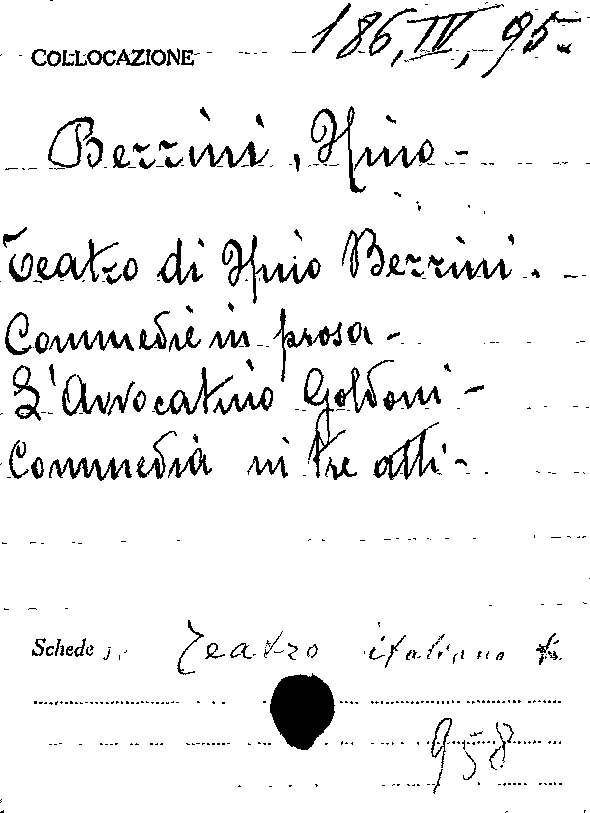 COLLOCAZIONE 186, IV, 95.
Berrini, Nino -
Teatro di Nino Berrini. -
Commedie in prosa -
L'Avvocatino Goldoni -
Commedia in tre atti -
Schede Teatro italiano
958